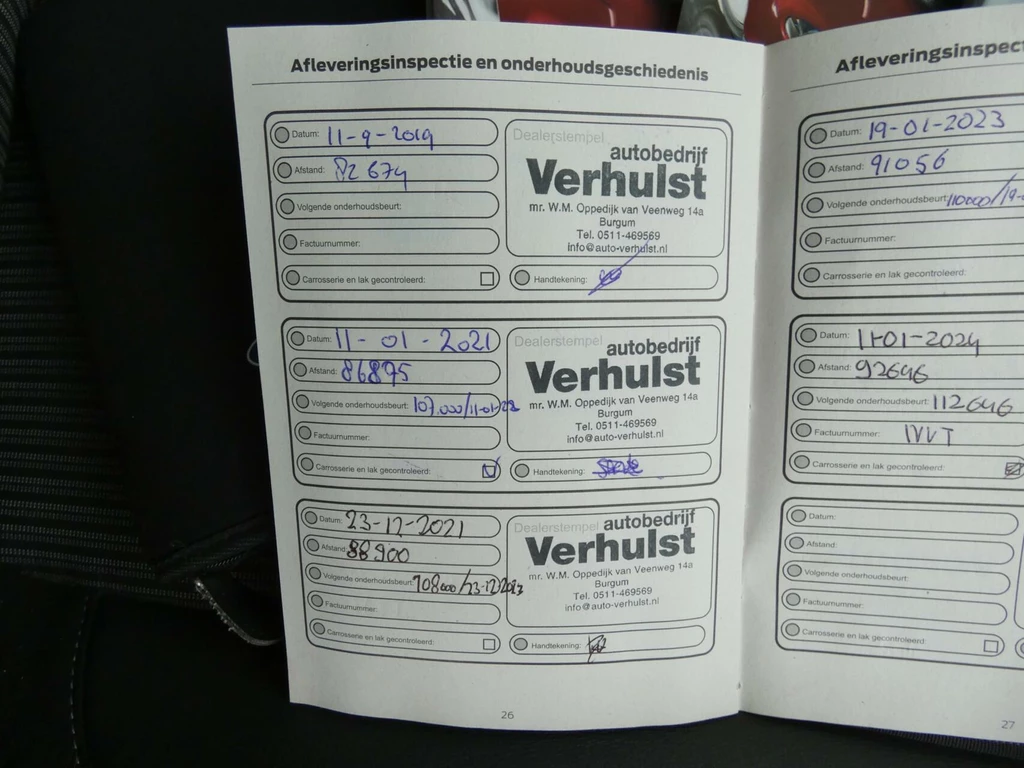 Afleveringsinspectie en onderhoudsgeschiedenis
Datum: 11-9-2019
Afstand: 82 674
Volgende onderhoudsbeurt:
Factuurnummer:
Carrosserie en lak gecontroleerd:
Dealerstempel
autobedrijf
Verhulst
mr. W.M. Oppedijk van Veenweg 14a
Burgum
Tel. 0511-469569
info@auto-verhulst.nl
Handtekening:
Datum: 11-01-2021
Afstand: 86895
Volgende onderhoudsbeurt: 107.000/11-01-22
Factuurnummer:
Carrosserie en lak gecontroleerd:
Dealerstempel
autobedrijf
Verhulst
mr. W.M. Oppedijk van Veenweg 14a
Burgum
Tel. 0511-469569
info@auto-verhulst.nl
Handtekening:
Datum: 23-12-2021
Afstand: 88900
Volgende onderhoudsbeurt: 108000/23-12-2022
Factuurnummer:
Carrosserie en lak gecontroleerd:
Dealerstempel
autobedrijf
Verhulst
mr. W.M. Oppedijk van Veenweg 14a
Burgum
Tel. 0511-469569
info@auto-verhulst.nl
Handtekening:
26
Afleveringsinspect
Datum: 19-01-2023
Afstand: 91056
Volgende onderhoudsbeurt: 110000/19-0
Factuurnummer:
Carrosserie en lak gecontroleerd:
Datum: 11-01-2024
Afstand: 92646
Volgende onderhoudsbeurt: 112646
Factuurnummer:
Carrosserie en lak gecontroleerd:
Datum:
Afstand:
Volgende onderhoudsbeurt:
Factuurnummer:
Carrosserie en lak gecontroleerd:
27